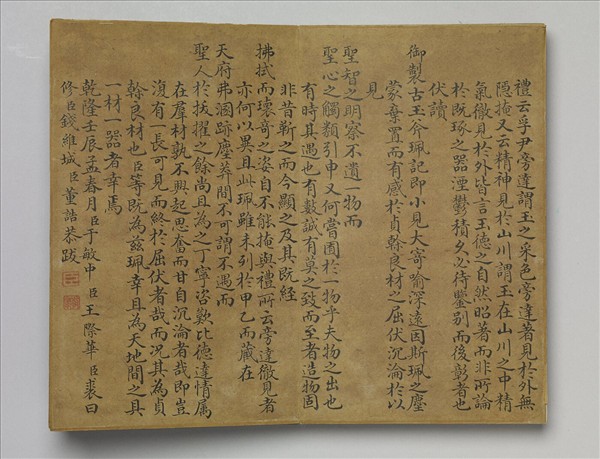 禮云孚尹旁達謂玉之采色旁達著見於外無
隱掩又云精神見於山川謂玉在山川之中精
氣徹見於外皆言玉德之自然昭著而非所論
於既琢之器湮鬱積久必待鑒别而後彰者也
伏讀
御製古玉介珮記即小見大寄喻深遠因斯珮之塵
蒙棄置而有感於貞榦良材之屈伏沉淪於以
見
聖智之明察不遺一物而
聖心之觸類引申又何嘗囿於一物乎夫物之出也
有時其遇也有數誠有莫之致而至者造物固
非昔靳之而今顯之及其既經
拂拭而瓌奇之姿自不能掩與禮所云旁達徹見者
亦何以異且此珮雖未列於甲乙而藏在
天府弗溷跡塵莽間不可謂不遇而
聖人於拔擢之餘尚且為之丁寧咨歎比德達情属
在羣材孰不興起思奮而甘自沉淪者哉即豈
復有一長可見而終於屈伏者哉而况其為貞
榦良材也臣等既為兹珮幸且為天地間之具
一材一器者幸焉
乾隆壬辰孟春月臣于敏中 臣王際華 臣裘曰
修臣錢維城臣董誥恭跋